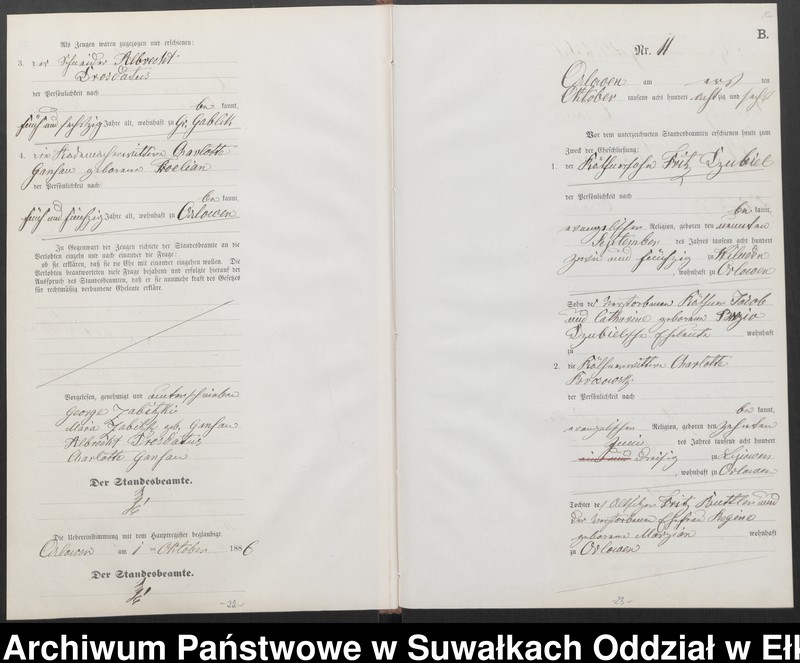 Als Zeugen waren zugezogen und erschienen:
3. der Schneider Albrecht
Drosdatus
der Persönlichkeit nach
be kannt,
fünf und sechszig Jahre alt, wohnhaft zu Gr. Gablik
4. die Charlotte
Gansau geborene
der Persönlichkeit nach
be kannt,
fünf und fünfzig Jahre alt, wohnhaft zu Orlowen
In Gegenwart der Zeugen richtete der Standesbeamte an die
Verlobten einzeln und nach einander die Frage:
ob sie erklären, daß sie die Ehe mit einander eingehen wollen. Die
Verlobten beantworteten diese Frage bejahend und erfolgte hierauf der
Ausspruch des Standesbeamten, daß er sie nunmehr kraft des Gesetzes
für rechtmäßig verbundene Eheleute erkläre.
Vorgelesen, genehmigt und unterschrieben
George Zabitzki
geb. Gansau
Albrecht Drosdatus
Charlotte Gansau
Der Standesbeamte.
Die Uebereinstimmung mit dem Hauptregister beglaubigt.
Orlowen am 1 ten Oktober 1886
Der Standesbeamte.
-22-
B.
Nr. 11
Orlowen am erst ten
Oktober tausend acht hundert achtzig und sechs
Vor dem unterzeichneten Standesbeamten erschienen heute zum
Zweck der Eheschließung:
1. der Käthnersohn Fritz Dzubiel
der Persönlichkeit nach
be kannt,
evangelischen Religion, geboren den neunten
September des Jahres tausend acht hundert
zwei und fünfzig zu
, wohnhaft zu Orlowen
Sohn des verstorbenen Käthner Jacob
und Catharine geborene
Dzubielschen Eheleute wohnhaft
zu
2. die Käthnerwittwe Charlotte
der Persönlichkeit nach
be kannt,
evangelischen Religion, geboren den zehnten
Juni des Jahres tausend acht hundert
ein und dreißig zu
, wohnhaft zu Orlowen
Tochter des Fritz und
der verstorbenen Ehefrau Regine
geborene Marzian wohnhaft
zu Orlowen
-23-
Archiwum Państwowe w Suwałkach Oddział w Ełk